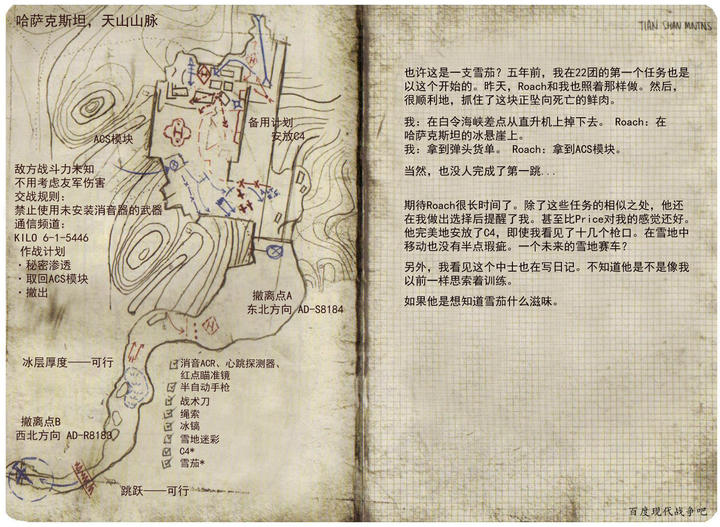 哈萨克斯坦，天山山脉
ACS模块
备用计划
安放C4
敌方战斗力未知
不用考虑友军伤害
交战规则：
禁止使用未安装消音器的武器
通信频道：
KILO 6-1-5446
作战计划
·秘密渗透
·取回ACS模块
·撤出
撤离点A
东北方向 AD-S8184
冰层厚度——可行
消音ACR、心跳探测器、
红点瞄准镜
半自动手枪
战术刀
绳索
冰镐
雪地迷彩
C4*
雪茄*
撤离点B
西北方向 AD-R8183
跳跃——可行
TIAN SHAN MNTNS
也许这是一支雪茄？五年前，我在22团的第一个任务也是
以这个开始的。昨天，Roach和我也照着那样做。然后，
很顺利地，抓住了这块正坠向死亡的鲜肉。
我：在白令海峡差点从直升机上掉下去。 Roach：在
哈萨克斯坦的冰悬崖上。
我：拿到弹头货单。 Roach：拿到ACS模块。
当然，也没人完成了第一跳...
期待Roach很长时间了。除了这些任务的相似之处，他还
在我做出选择后提醒了我。甚至比Price对我的感觉还好。
他完美地安放了C4，即使我看见了十几个枪口。在雪地中
移动也没有半点瑕疵。一个未来的雪地赛车？
另外，我看见这个中士也在写日记。不知道他是不是像我
以前一样思索着训练。
如果他是想知道雪茄什么滋味。
百度现代战争吧